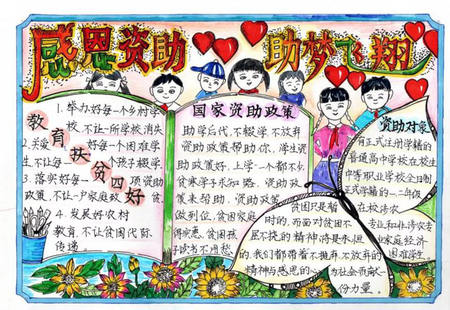 感恩资助 助梦飞翔
教育扶贫四好
1.举办好每一个乡村学
校,不让一所学校消失
2.关爱好每一个困难学
生,不让每一个孩子辍学
3.落实好每一项资助
政策,不让一户家庭政
4.发展好农村
教育,不让贫困代际
传递。
国家资助政策
助学后代,不辍学,不放弃
资助政策帮助你,学生资
助政策好,上学一个都不少
贫寒学子求知路,资助政
策来帮助,资助政策
做到位,贫困家庭
得实惠,贫困孩
子读书不用愁
资助对象
有正式注册学籍的
普通高中学校在校生
中等职业学校全日制
正式学籍的一、二年级
在校涉农
专业和非涉农专
业家庭经济
困难学生。
贫困只是暂
时的,而面对贫困不
屈不挠的精神将是永恒
的,我们都带着不抛弃、不放弃的
精神与感恩的心为社会贡献一
份力量。